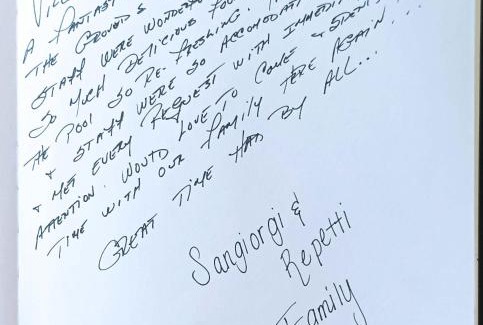 A FANTAS
THE GROUNDS
STAFF WERE WONDERF
SO MUCH DELICIOUS FOO
THE POOL SO RE-FRESHING.
& STAFF WERE SO ACCOMODATI
& MET EVERY REQUEST WITH IMMEDI
ATTENTION. WOULD LOVE TO COME & SPEND
TIME WITH OUR FAMILY HERE AGAIN...
GREAT TIME HAD BY ALL...
Sangiorgi &
Repetti
Family